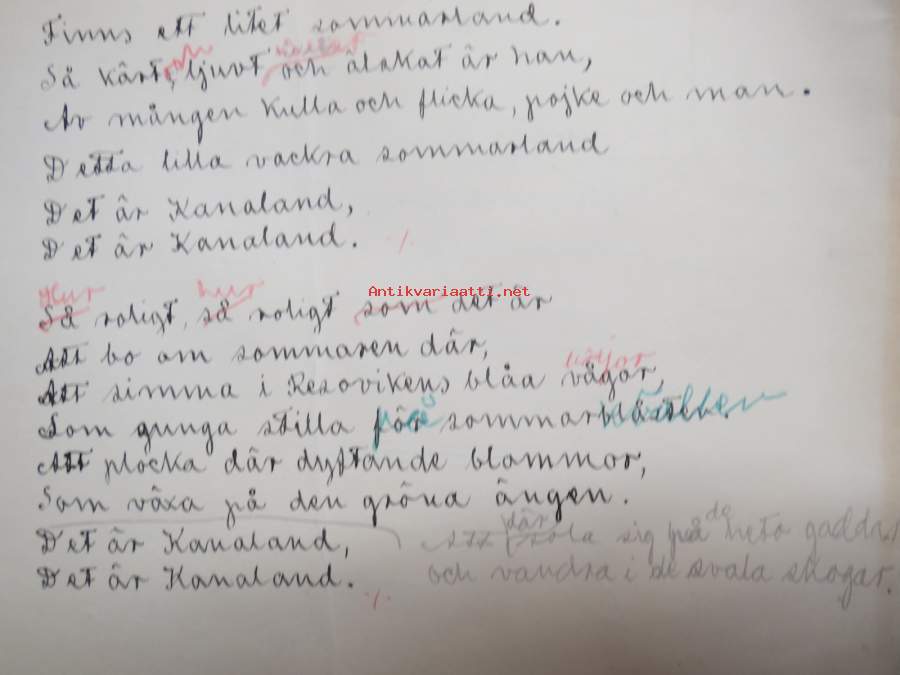 Finns ett litet sommarland.
och
Så kärt, ljuvt och älskat är han,
Av mången kulla och flicka, pojke och man.
Detta lilla vackra sommarland
Det är Kanaland,
Det är Kanaland. ./.
Antikvariaatti.net
Hur hur
Så roligt, så roligt som det är
Att bo om sommaren där,
böljor
Att simma i Resovikens blåa vågor,
Som gunga stilla för sommar
Att plocka där dyftande blommor,
Som växa på den gröna ängen.
Det är Kanaland,
där de
Att sola sig på heta
Det är Kanaland. ./.
och vandra i de svala skogar.